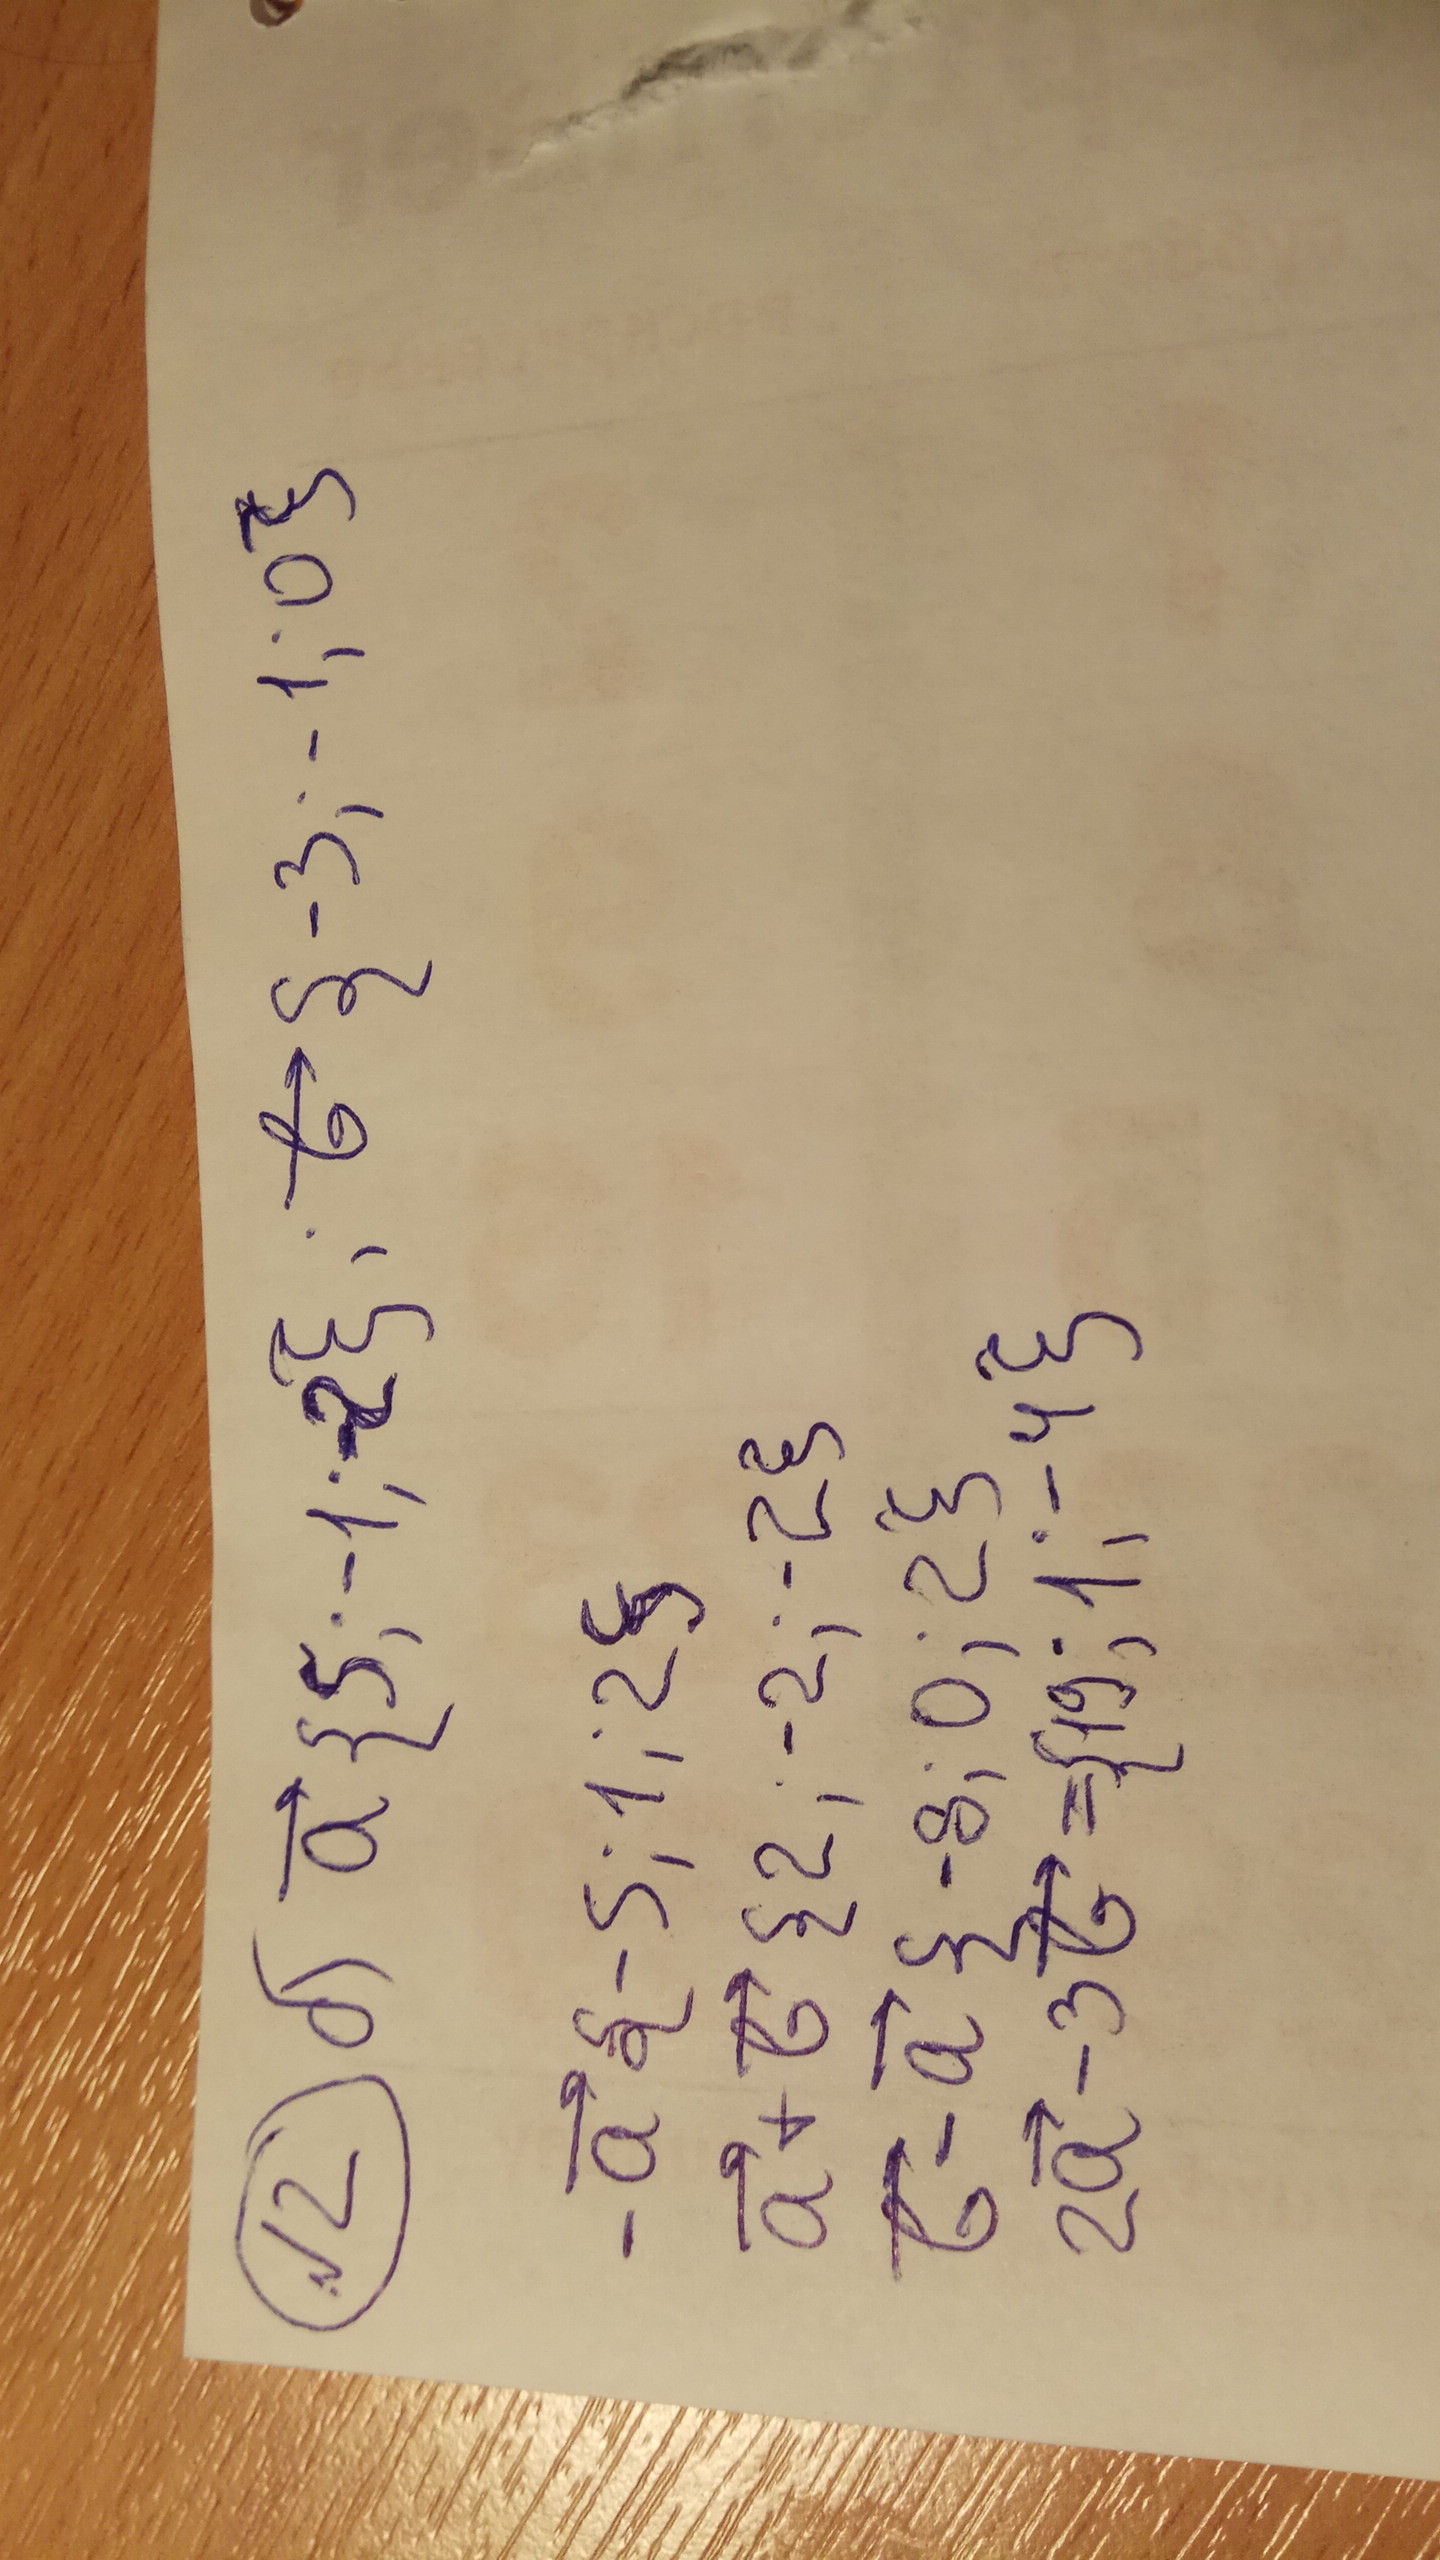 √2 б) a⃗ {5; -1; -2}; b⃗ {-3; -1; 0}
-a⃗ {-5; 1; 2}
a⃗ + b⃗ {2; -2; -2}
b⃗ - a⃗ {-8; 0; 2}
2a⃗ - 3b⃗ = {19; 1; -4}